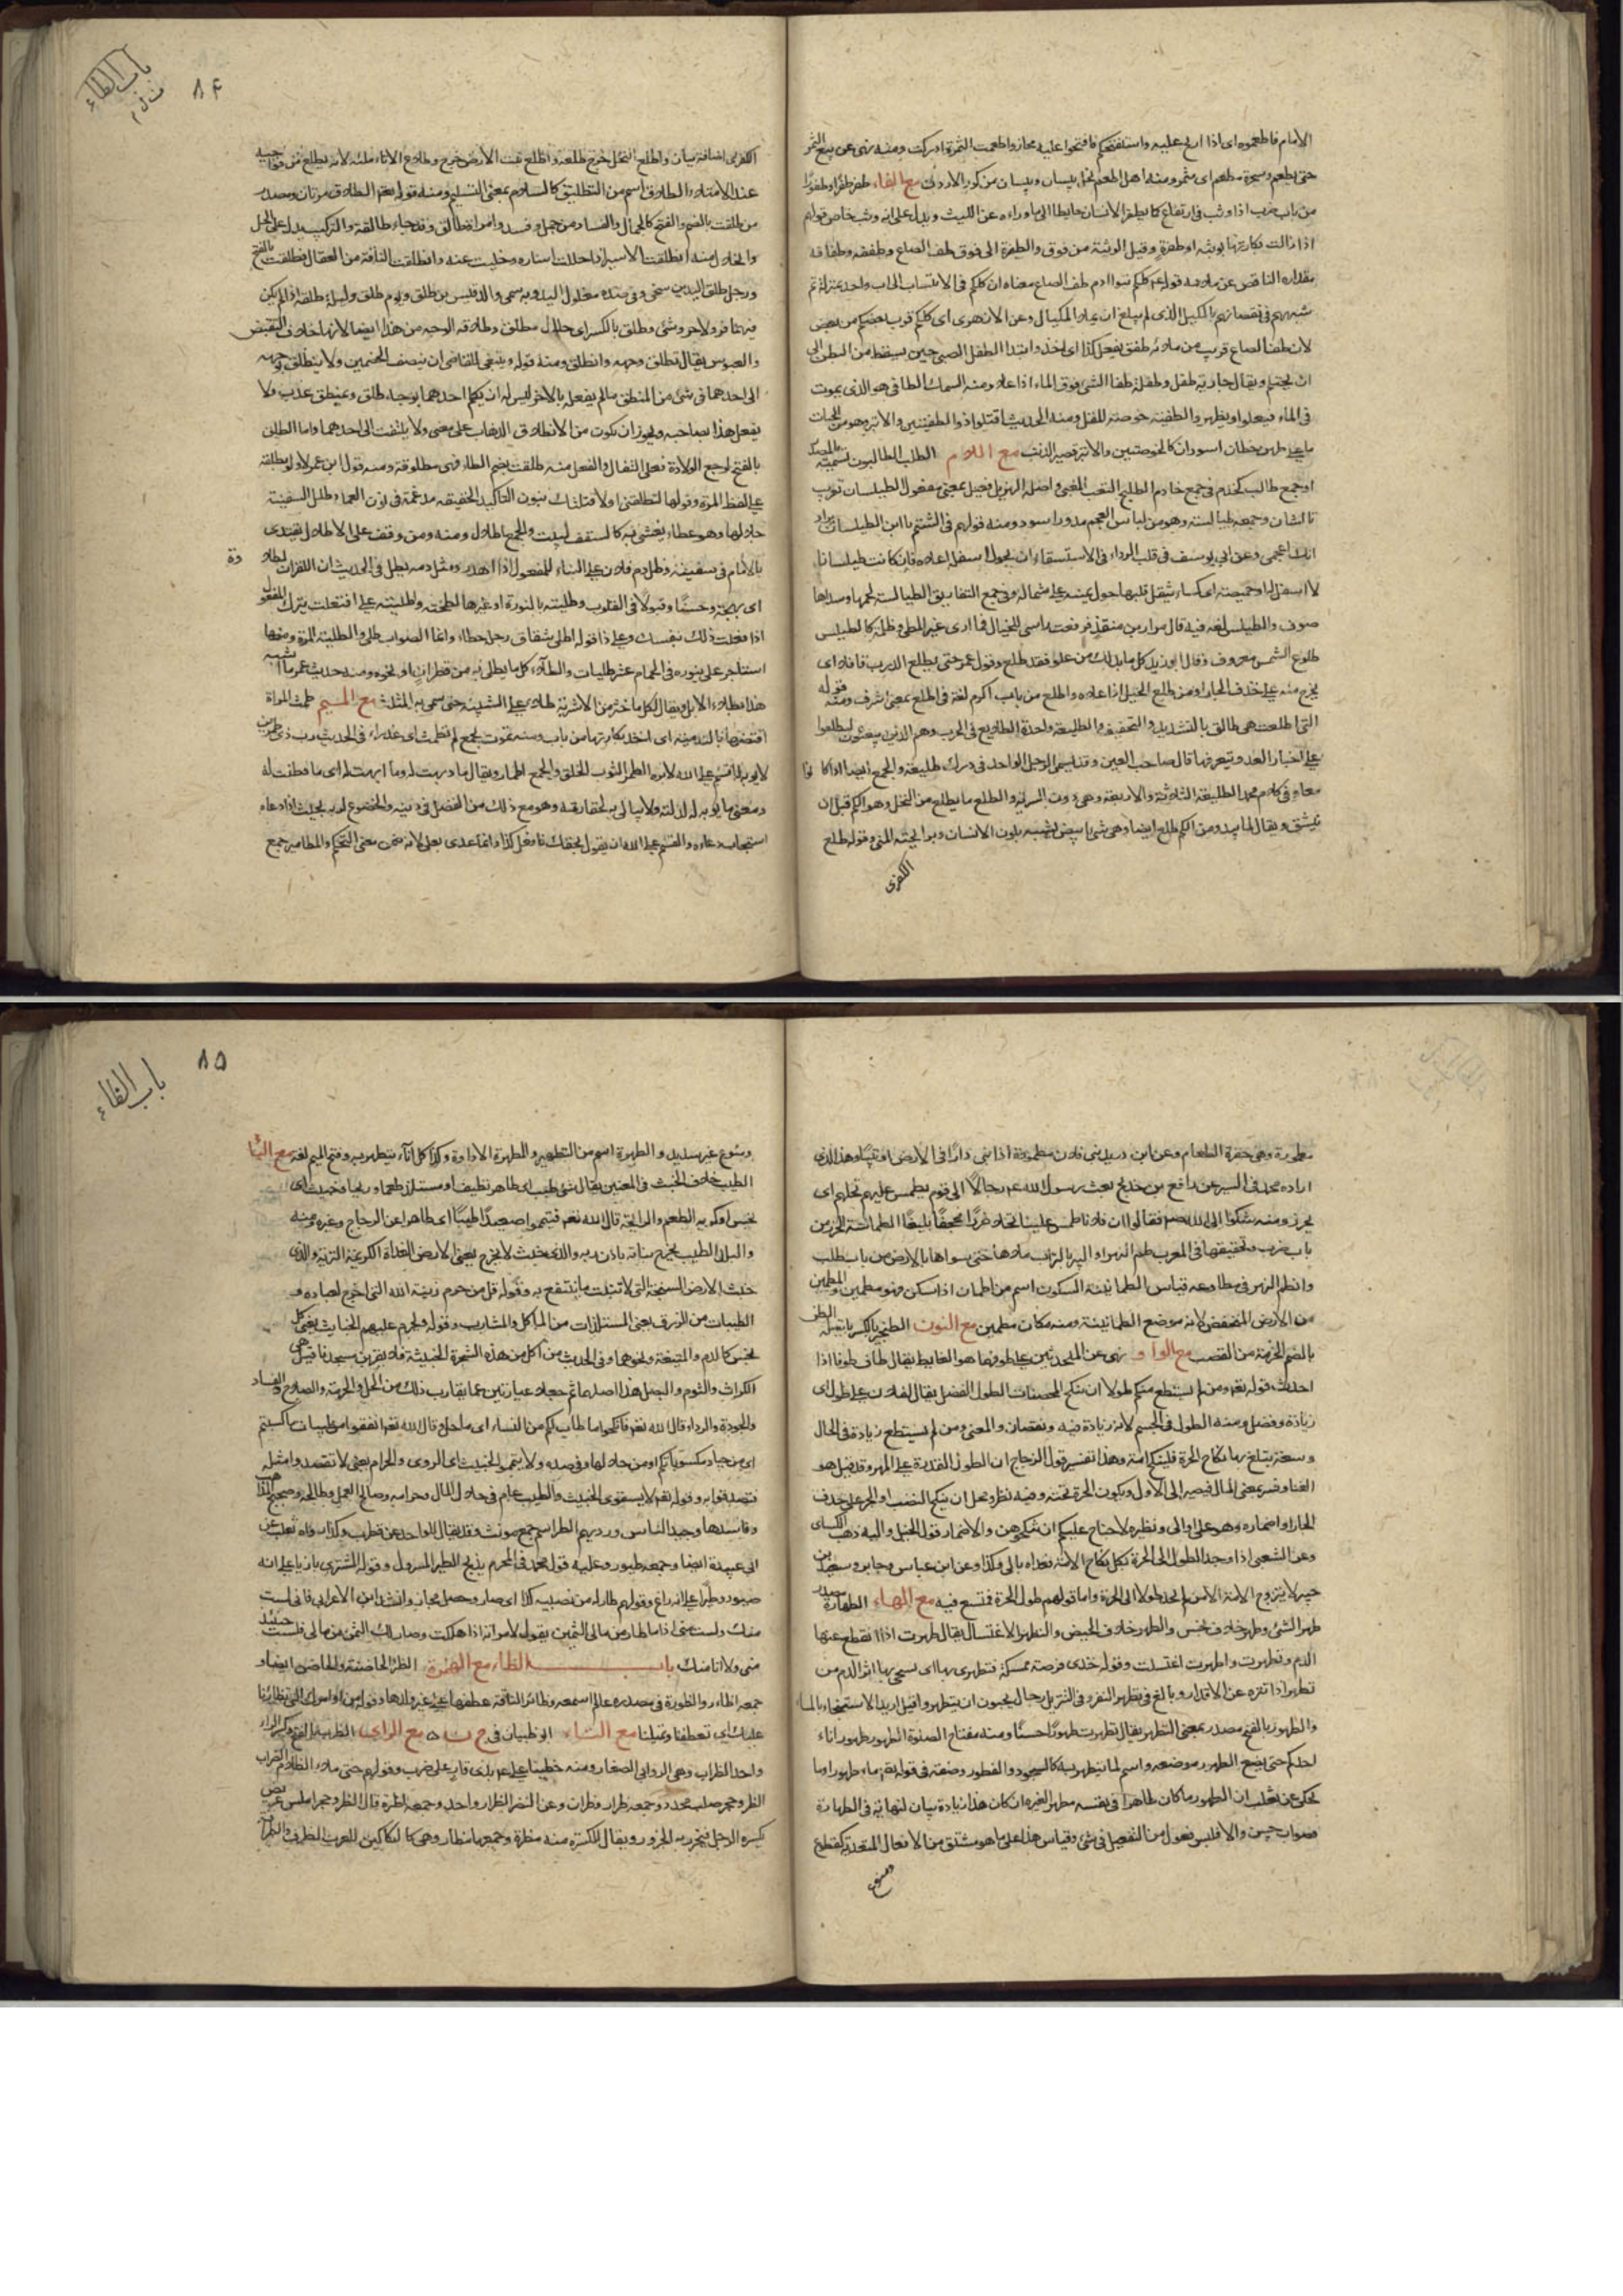 الامام فاطعموه اى اذا ارتج عليه واستفتحكم فافتحوا عليه مجاز واطعمت الثمرة ادركت ومنه نهى عن بيع الثمر
حتى يطعم وشجرة مطعم اى مثمر ومنه اهل المطعم مع الفاء طفر طفرا وطفورا
من باب ضرب اذا وثب فى ارتفاع كما يطفر الانسان حايطا الى ماوراءه عن الليث ويدل على انه وثب خاص قولهم
اذا زالت بكارتها بوثبة او طفرة وقيل الوثبة من فوق والطفرة الى فوق طف الصاع وطففه وطفافه
مقداره الناقص عن ملئه قوله عم كلكم بنوا ادم طف الصاع معناه ان كلكم فى الانتساب الى اب واحد بمنزلة ثم
شبههم فى نقصانهم بالمكيل الذى لم يبلغ ان يملا المكيال وعن الازهرى اى كلكم قريب بعضكم من بعض
لان طف الصاع قريب من ملئه طفق يفعل كذا اى اخذ وابتدا الطفل الصبى حين يسقط من البطن الى
ان يحتلم ويقال جارية طفل وطفلة طفا الشئ فوق الماء اذا علا ومنه السمك الطافى هو الذى يموت
فى الماء فيعلو او يظهر والطفية خوصة المقل ومنه الحديث اقتلوا ذوا الطفيتين والابتر وهو من الحيات
ما على ظهره خطان اسودان كالخوصتين والابتر قصير الذنب مع اللام الطلب الطالبون تسمية بالمصدر
او جمع طالب كخدم فى جمع خادم الطليح التعب المعيى واصله الهزيل فعيل بمعنى مفعول الطيلسان تعريب
تالشان وجمعه طيالسة وهو من لباس العجم مدور اسود ومنه قولهم فى الشتم يا ابن الطيلسان يراد
انك اعجمى وعن ابى يوسف فى قلب الرداء فى الاستسقاء ان يحول اسفله اعلاه فان كانت طيلسانا
لا اسفل له او خميصة اى كساء يثقل قلبها حول يمينه على شماله وفى جمع التفاريق الطيالسة لحمها وسداها
صوف والطيلس لغة فيه قال مرار بن منقذ فرفعت راسى للخيال فما ارى غير المطى وظلة كالطيلس
طلوع الشمس معروف وقال ابو زيد كل ما بدا لك من علو فقد طلع وقول عمر حتى يطلع الدرب قافلا اى
يخرج منه على حذف الجار او من طلع الجبل اذا علاه واطلع من باب اكرم لغة فى اطلع بمعنى اشرف ومنه قوله
التى اطلعت هى طالق بالتشديد والتخفيف والطليعة واحدة الطلايع فى الحرب وهم الذين يبعثون ليطلعوا
على اخبار العدو ويتعرفونها قال صاحب العين وقد يسمى الرجل الواحد فى ذلك طليعة والجمع ايضا اذا كانوا
معا وفى كلام محمد الطليعة الثلاثة والاربعة وهى دون السرية والطلع ما يطلع من النخل وهو الكم قبل ان
ينشق ويقال لما يبدو من الكم طلع ايضا وهى شئ ابيض يشبه بلونه الاسنان وبرايحته المنى وقوله طلع
الكفرى
باب الطاء
٨٤
الكفرى اضافة بيان واطلع النخل خرج طلعه واطلع نبت الارض خرج وطلاع الاناء ملئه لانه يطلع من نواحيه
عند الامتلاء الطلاق اسم من التطليق كالسلام بمعنى التسليم ومنه قوله نعم الطلاق مرتان ومصدر
من طلقت بالضم والفتح كالجمال والفساد من جمل وفسد وامراة طالق وقد جاء طالقة والتركيب يدل على الحل
والانحلال منه اطلقت الاسير اذا حللت اساره وخليت عنه واطلقت الناقة من العقال فطلقت بالفتح
ورجل طلق اليدين سخى وفى ضده مغلول اليد وبه سمى والد قيس بن طلق ويوم طلق وليلة طلقة اذا لم يكن
فيهما قر ولا حر وشئ وطلق بالكسر اى حلال مطلق وطلاقة الوجه من هذا ايضا لانها خلاف التقبض
والعبوس يقال تطلق وجهه وانطلق ومنه قوله وينبغى للقاضى ان ينصف الخصمين ولا ينطلق بوجهه
الى احدهما فى شئ من المنطق مالم يفعله بالاخر ليس له ان يكلم احدهما بوجه طلق ومنطق عذب ولا
يفعل هذا بصاحبه ويجوز ان يكون من الانطلاق الذهاب على معنى ولا يلتفت الى احدهما واما الطلق
بالفتح لوجع الولادة فعلى التفال والفعل منه طلقت بضم الطاء فهى مطلوقة ومنه قول ابن عمر ولا بطلقة
على لفظ المرة وقولها لتطلقنى او لاقتلنك بنون التاكيد الخفيفة مدغمة فى نون العماد وظلل السفينة
جلالها وهو غطاء يغشى به كالسقف للبيت والجمع اطلال ومنه ومن وقف على الاطلال يقتدى
بالامام فى سفينة وطل دم فلان على البناء للمفعول اذا اهدر ومثل دمه يطل فى الحديث ان للقران لطلاوة
اى بهجة وحسنا وقبولا فى القلوب وطليته بالنورة او غيرها لطخته واطليته على افتعلت بترك المفعول
اذا فعلت ذلك بنفسك وعلى ذا قوله اطلى شقاق رجله خطاء وانما الصواب طلى والطلية المرة ومنها
استاجر على نوره فى الحمام عشر طليات والطلاء كل ما يطلى به من قطران او نحوه ومنه حديث عمر ما اشبه
هذا بطلاء الابل ويقال لكل ما خثر من الاشربة طلاء على التشبيه حتى سمى به المثلث مع الميم طمث المراة
افتضها بالتدمية اى اخذ بكارتها من باب ومنه بجمع لم تطمث اى عذراء فى الحديث رب ذى طمرين
لا يؤبه له لو اقسم على الله لابره الطمر الثوب الخلق والجمع اطمار ويقال ما وبهت له وما ابهت له اى ما فطنت له
ومعنى ما يؤبه له لذلته ولا يبالى به لحقارته وهو مع ذلك من الفضل فى دينه والخضوع لربه بحيث اذا دعاه
استجاب دعاءه والقسم على الله ان يقول بحقك فافعل كذا وانما عدى بعلى لانه ضمن معنى التحكم والمطامير جمع
مطمورة وهى حفرة الطعام وعن ابن دريد بنى فلان مطمورة اذا بنى دارا فى الارض او بيتا وهذا الذى
اراده محمد فى السير عن رافع بن خديج بعث رسول الله عم رجالا الى قوم يطمس عليهم نخلهم اى
يحرز ومنه شكوا الى الله فقالوا ان فلانا طمس علينا نخلا خرزا مجحفا بليغا الطماسة الحزر من
باب ضرب وتحقيقها فى المعرب طم النهر او البير بالتراب ملاها حتى سواها بالارض من باب طلب
وانطم النهر فى مطاوعه قياس الطمانينة السكون اسم من اطمان اذا سكن وهو مطمئن والمطمئن
من الارض المنخفض لانه موضع الطمانينة ومنه مكان مطمئن مع النون الطنجير بالكسر الطن
بالضم الحزمة من القصب مع الواو نهى عن المتحدثين على طوفهما هو الغايط يقال طاف طوفا اذا
احدث قوله نعم ومن لم يستطع منكم طولا ان ينكح المحصنات الطول الفضل يقال لفلان على طول اى
زيادة وفضل ومنه الطول فى الجسم لانه زيادة فيه ونقصان والمعنى ومن لم يستطع زيادة فى الحال
وسعة يبلغ بها نكاح الحرة فلينكح امة وهذا تفسير قول الزجاج ان الطول القدرة على المهر وقد قيل هو
الغنا وفسر بمعنى المال فيصير الى الاول وبكون الحرة تحته وفيه نظر ومحل ان ينكح النصب او الجر على حذف
الجار او اضماره وهو على او الى ونظيره لا جناح عليكم ان تنكحوهن والاضمار قول الخليل واليه ذهب الكسائى
وعن الشعبى اذا وجد الطول الى الحرة بطل نكاح الامة فعداه بالى وكذا وعن ابن عباس وجابر وسعيد بن
جبير لا يتزوج الامة الا من لم يجد طولا الى الحرة واما قولهم طول الحرة فمتسع فيه مع الهاء الطهارة مصدر
طهر الشئ وطهر خلاف نجس والطهر خلاف الحيض والتطهر الاغتسال يقال طهرت اذا انقطع عنها
الدم وتطهرت واطهرت اغتسلت وقوله خذى فرصة ممسكة فتطهرى بها اى تمسحى بها اثر الدم من
تطهر اذا تنزه عن الاقذار وبالغ فى تطهير النفس وفى التنزيل رجال يحبون ان يتطهروا قيل اريد الاستنجاء بالماء
والطهور بالفتح مصدر بمعنى التطهر يقال تطهرت طهورا حسنا ومنه مفتاح الصلوة الطهور وطهور اناء
احدكم حتى يضع الطهور موضعه واسم لما يتطهر به كالسحور والفطور وصفة فى قوله نعم ماء طهورا وما
حكى عن ثعلب ان الطهور ما كان طاهرا فى نفسه مطهرا لغيره ان كان هذا زيادة بيان لنهايته فى الطهارة
فصواب حسن والا فليس فعول من التفعيل فى شئ وقياس هذا على ما هو مشتق من الافعال المتعدية كقطوع
ومنوع
باب الظاء
٨٥
ومنوع غير سديد والطهرة اسم من التطهير والمطهرة الاداوة وكذا كل اناء يتطهر به وفتح الميم لغة مع الياء
الطيب خلاف الخبث فى المعنيين يقال شئ طيب اى طاهر نظيف او مستلذ طعما وريحا وخبيث اى
نجس او كريه الطعم والرائحة قال الله نعم فتيمموا صعيدا طيبا اى طاهرا عن الزجاج وغيره ومنه
والبلد الطيب يخرج نباته باذن ربه والذى خبث لا يخرج يعنى الارض الغداة الكريمة التربة والذى
خبث الارض السبخة التى لا تنبت ما ينتفع به وقوله قل من حرم زينة الله التى اخرج لعباده و
الطيبات من الرزق يعنى المستلذات من الماكل والمشارب وقوله ويحرم عليهم الخبائث يعنى كل
نجس كالدم والميتة ونحوهما وفى الحديث من اكل من هذه الشجرة الخبيثة فلا يقربن مسجدنا قيل هى
الكراث والثوم والبصل هذا اصلهما ثم جعلا عبارتين عما يقارب ذلك من الحل والحرمة والصلاح والفساد
والجودة والرداءة قال الله نعم فانكحوا ما طاب لكم من النساء اى ما حل وقال الله نعم انفقوا من طيبات ما كسبتم
اى من جياد مكسوباتكم او من حلالها وفى ضده ولا تيمموا الخبيث اى الردى والحرام يعنى لا تقصدوا مثله
فتصدقوا به وقوله نعم لا يستوى الخبيث والطيب عام فى حلال المال وحرامه وصالح العمل وطالحه وصحيح المذاهب
وفاسدها وجيد الناس ورديهم الطير اسم جمع مونث وقد يقال للواحد عن قطرب وكذا رواه ثعلب عن
ابى عبيدة ايضا وجمعه طيور وعليه قول محمد فى المحرم يذبح الطير المسرول وقوله اشترى بازيا على انه
صيود وطيرا على انه راع وقولهم طار له من نصيبه كذا اى صار وحصل مجاز وانشد ابن الاعرابى فانى لست
منك ولست منى اذا ما طار من مالى الثمين يقول لامراته اذا هلكت وصار لك الثمن من مالى فلست حينئذ
منى ولا انا منك باب الظاء مع الهمزة الظئر الحاضنة والحاضن ايضا و
جمعه اظار والظئورة فى مصدره على ما اسمعه وظائر الناقة عطفها على غير ولدها
عليك اى تعطفنا وتميلنا مع الباء ابو ظبيان فى مع الراء الظرب بالفتح وكسر الراء
واحد الظراب وهى الروابى الصغار ومنه خطبنا على ضرب وقولهم حتى ملاء الظلام الظراب
الظر وجمعه ظرار وظران وعن النضر الظرار واحد وجمعه اظرة
يكسره الرجل فيجزر به الجزور ويقال للكسرة منه مظرة وجمعها مظار وهى كالسكاكين للعرب